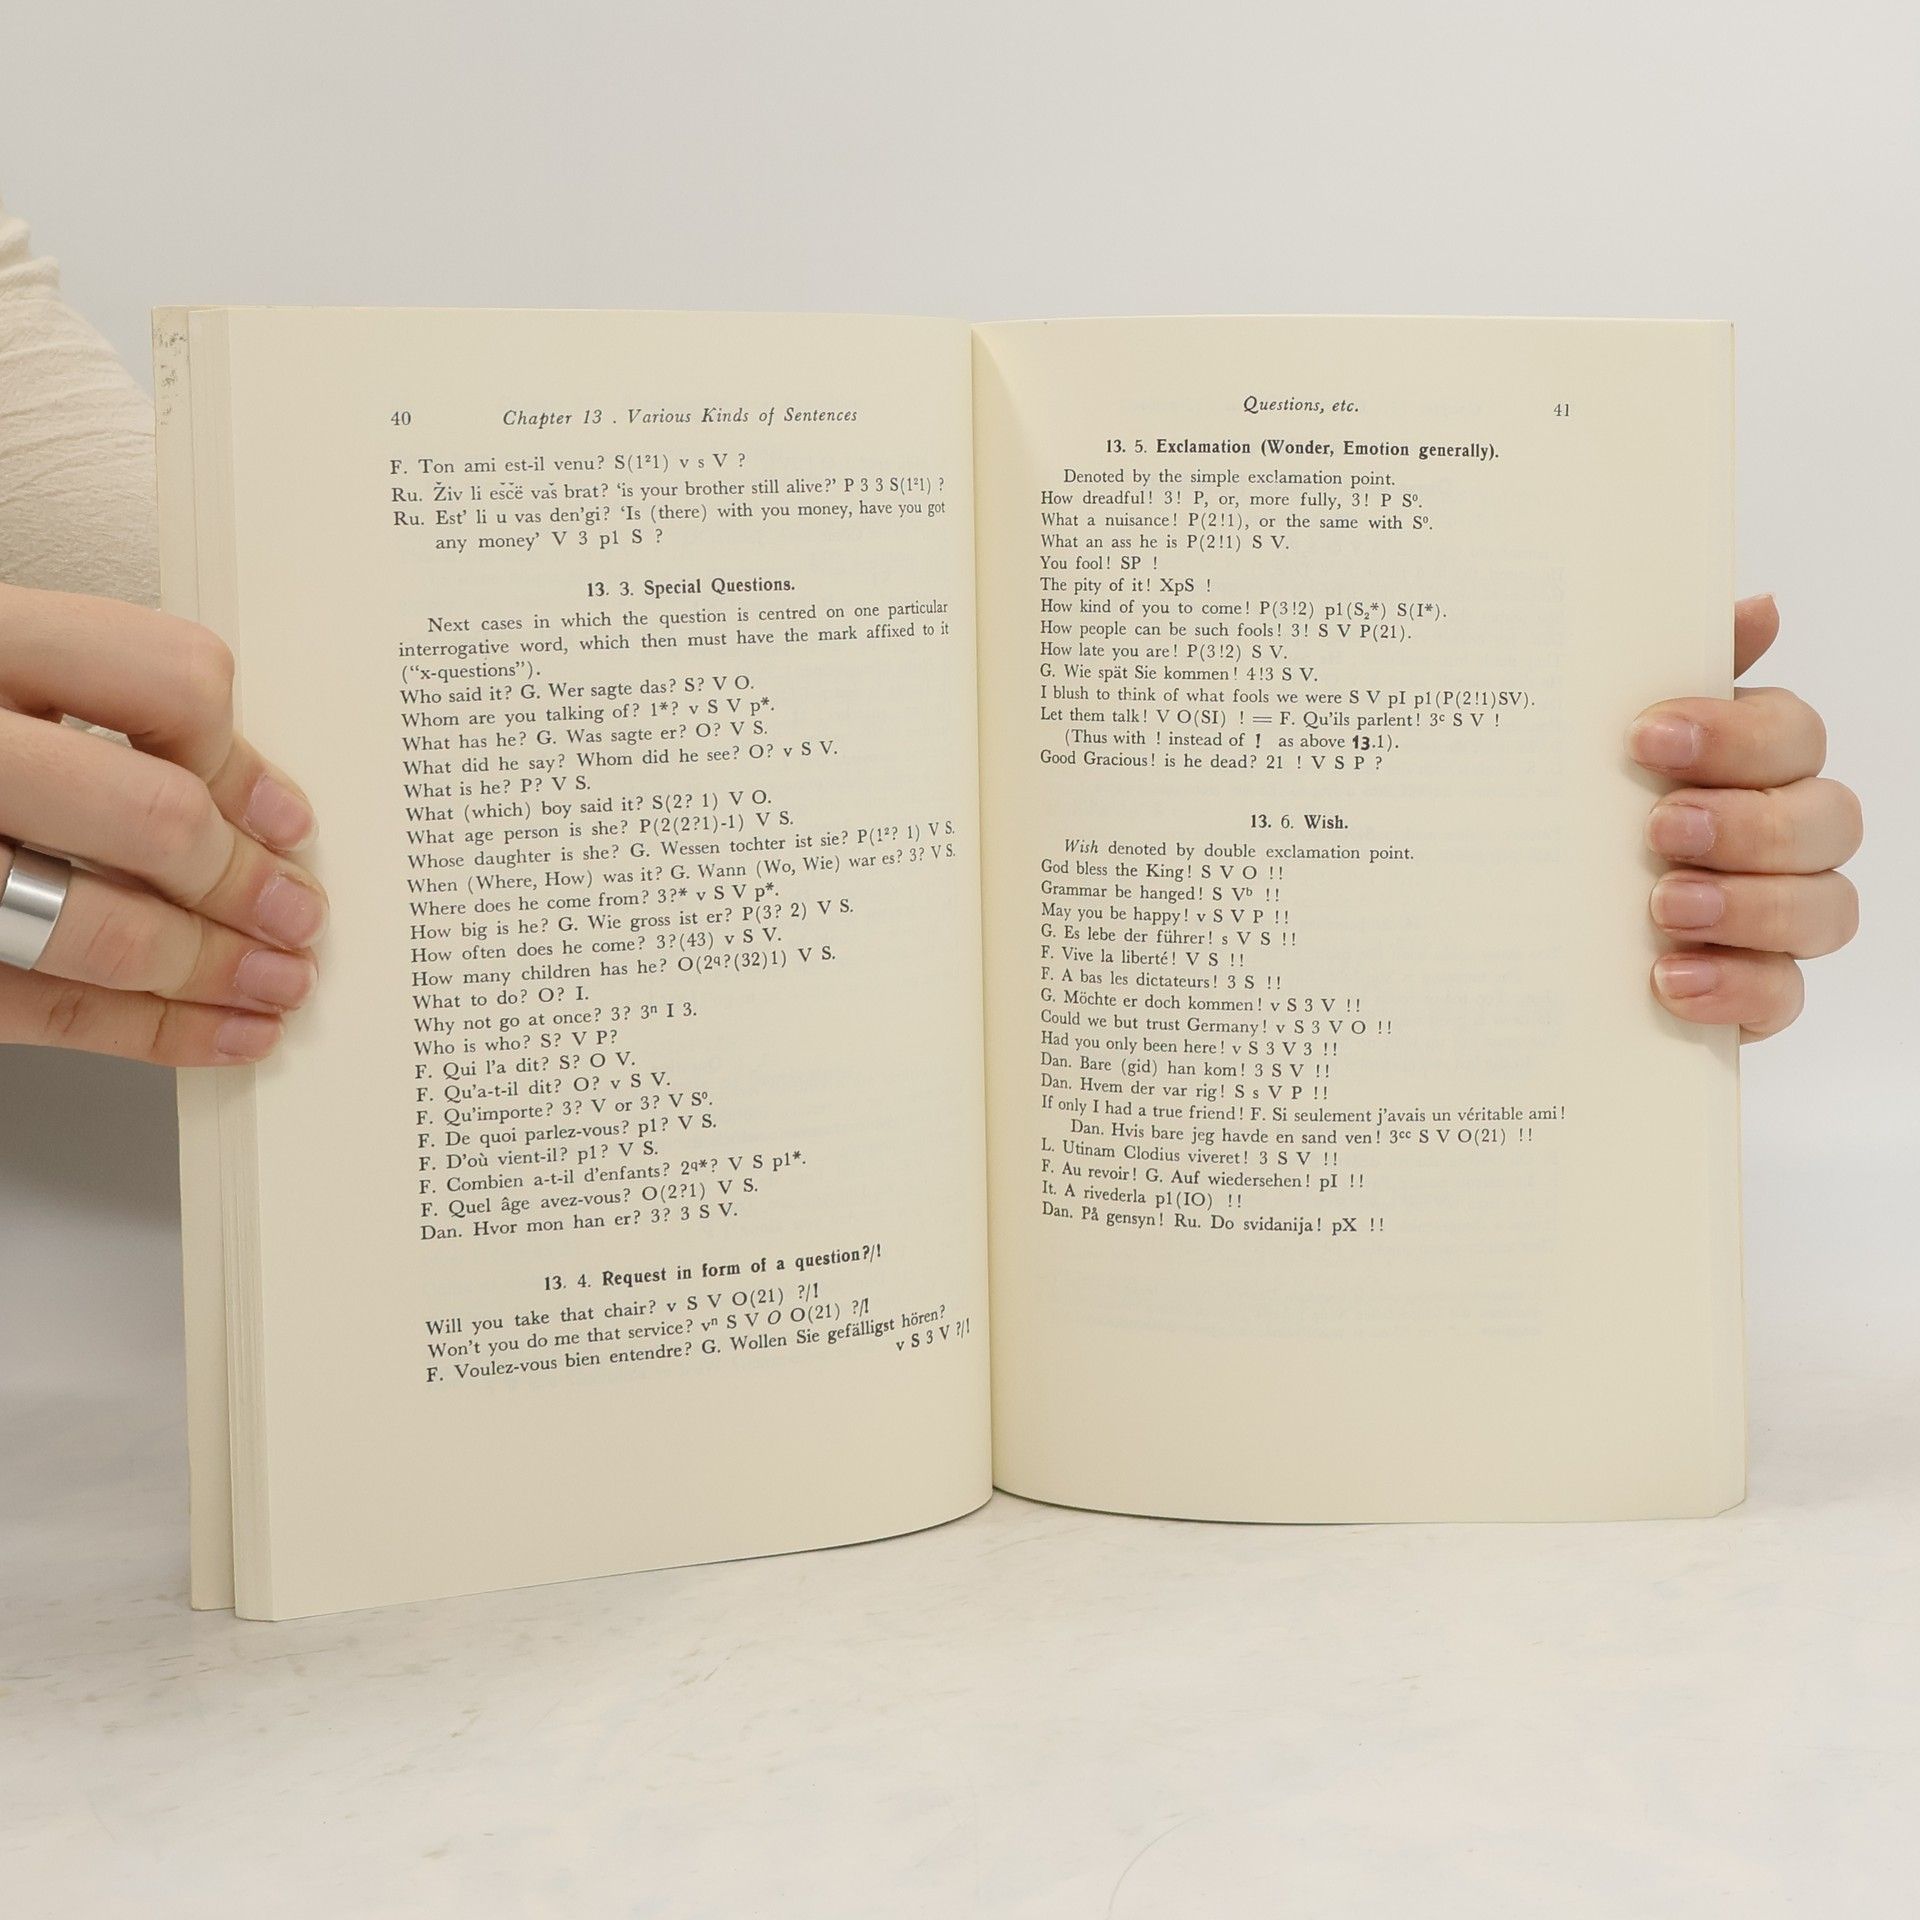 40 Chapter 13 . Various Kinds of Sentences
F. Ton ami est-il venu? S(1²1) v s V ?
Ru. Živ li eščë vaš brat? ‘is your brother still alive?’ P 3 3 S(1²1) ?
Ru. Est’ li u vas den’gi? ‘Is (there) with you money, have you got
any money’ V 3 p1 S ?
13. 3. Special Questions.
Next cases in which the question is centred on one particular
interrogative word, which then must have the mark affixed to it
(“x-questions”).
Who said it? G. Wer sagte das? S? V O.
Whom are you talking of? 1*? v S V p*.
What has he? G. Was sagte er? O? V S.
What did he say? Whom did he see? O? v S V.
What is he? P? V S.
What (which) boy said it? S(2? 1) V O.
What age person is she? P(2(2?1)-1) V S.
Whose daughter is she? G. Wessen tochter ist sie? P(1²? 1) V S.
When (Where, How) was it? G. Wann (Wo, Wie) war es? 3? V S.
Where does he come from? 3?* v S V p*.
How big is he? G. Wie gross ist er? P(3? 2) V S.
How often does he come? 3?(43) v S V.
How many children has he? O(2q?(32)1) V S.
What to do? O? I.
Why not go at once? 3? 3ⁿ I 3.
Who is who? S? V P?
F. Qui l’a dit? S? O V.
F. Qu’a-t-il dit? O? v S V.
F. Qu’importe? 3? V or 3? V S⁰.
F. De quoi parlez-vous? p1? V S.
F. D’où vient-il? p1? V S.
F. Combien a-t-il d’enfants? 2q*? V S p1*.
F. Quel âge avez-vous? O(2?1) V S.
Dan. Hvor mon han er? 3? 3 S V.
13. 4. Request in form of a question?/!
Will you take that chair? v S V O(21) ?/!
Won’t you do me that service? vⁿ S V O O(21) ?/!
F. Voulez-vous bien entendre? G. Wollen Sie gefälligst hören?
v S 3 V ?/!
Questions, etc. 41
13. 5. Exclamation (Wonder, Emotion generally).
Denoted by the simple exclamation point.
How dreadful! 3! P, or, more fully, 3! P S⁰.
What a nuisance! P(2!1), or the same with S⁰.
What an ass he is P(2!1) S V.
You fool! SP !
The pity of it! XpS !
How kind of you to come! P(3!2) p1(S₂*) S(I*).
How people can be such fools! 3! S V P(21).
How late you are! P(3!2) S V.
G. Wie spät Sie kommen! 4!3 S V.
I blush to think of what fools we were S V pI p1(P(2!1)SV).
Let them talk! V O(SI) ! = F. Qu’ils parlent! 3ᶜ S V !
(Thus with ! instead of ! as above 13.1).
Good Gracious! is he dead? 21 ! V S P ?
13. 6. Wish.
Wish denoted by double exclamation point.
God bless the King! S V O !!
Grammar be hanged! S Vᵇ !!
May you be happy! v S V P !!
G. Es lebe der führer! s V S !!
F. Vive la liberté! V S !!
F. A bas les dictateurs! 3 S !!
G. Möchte er doch kommen! v S 3 V !!
Could we but trust Germany! v S 3 V O !!
Had you only been here! v S 3 V 3 !!
Dan. Bare (gid) han kom! 3 S V !!
Dan. Hvem der var rig! S s V P !!
If only I had a true friend! F. Si seulement j’avais un véritable ami!
Dan. Hvis bare jeg havde en sand ven! 3ᶜᶜ S V O(21) !!
L. Utinam Clodius viveret! 3 S V !!
F. Au revoir! G. Auf wiedersehen! pI !!
It. A rivederla p1(IO) !!
Dan. På gensyn! Ru. Do svidanija! pX !!